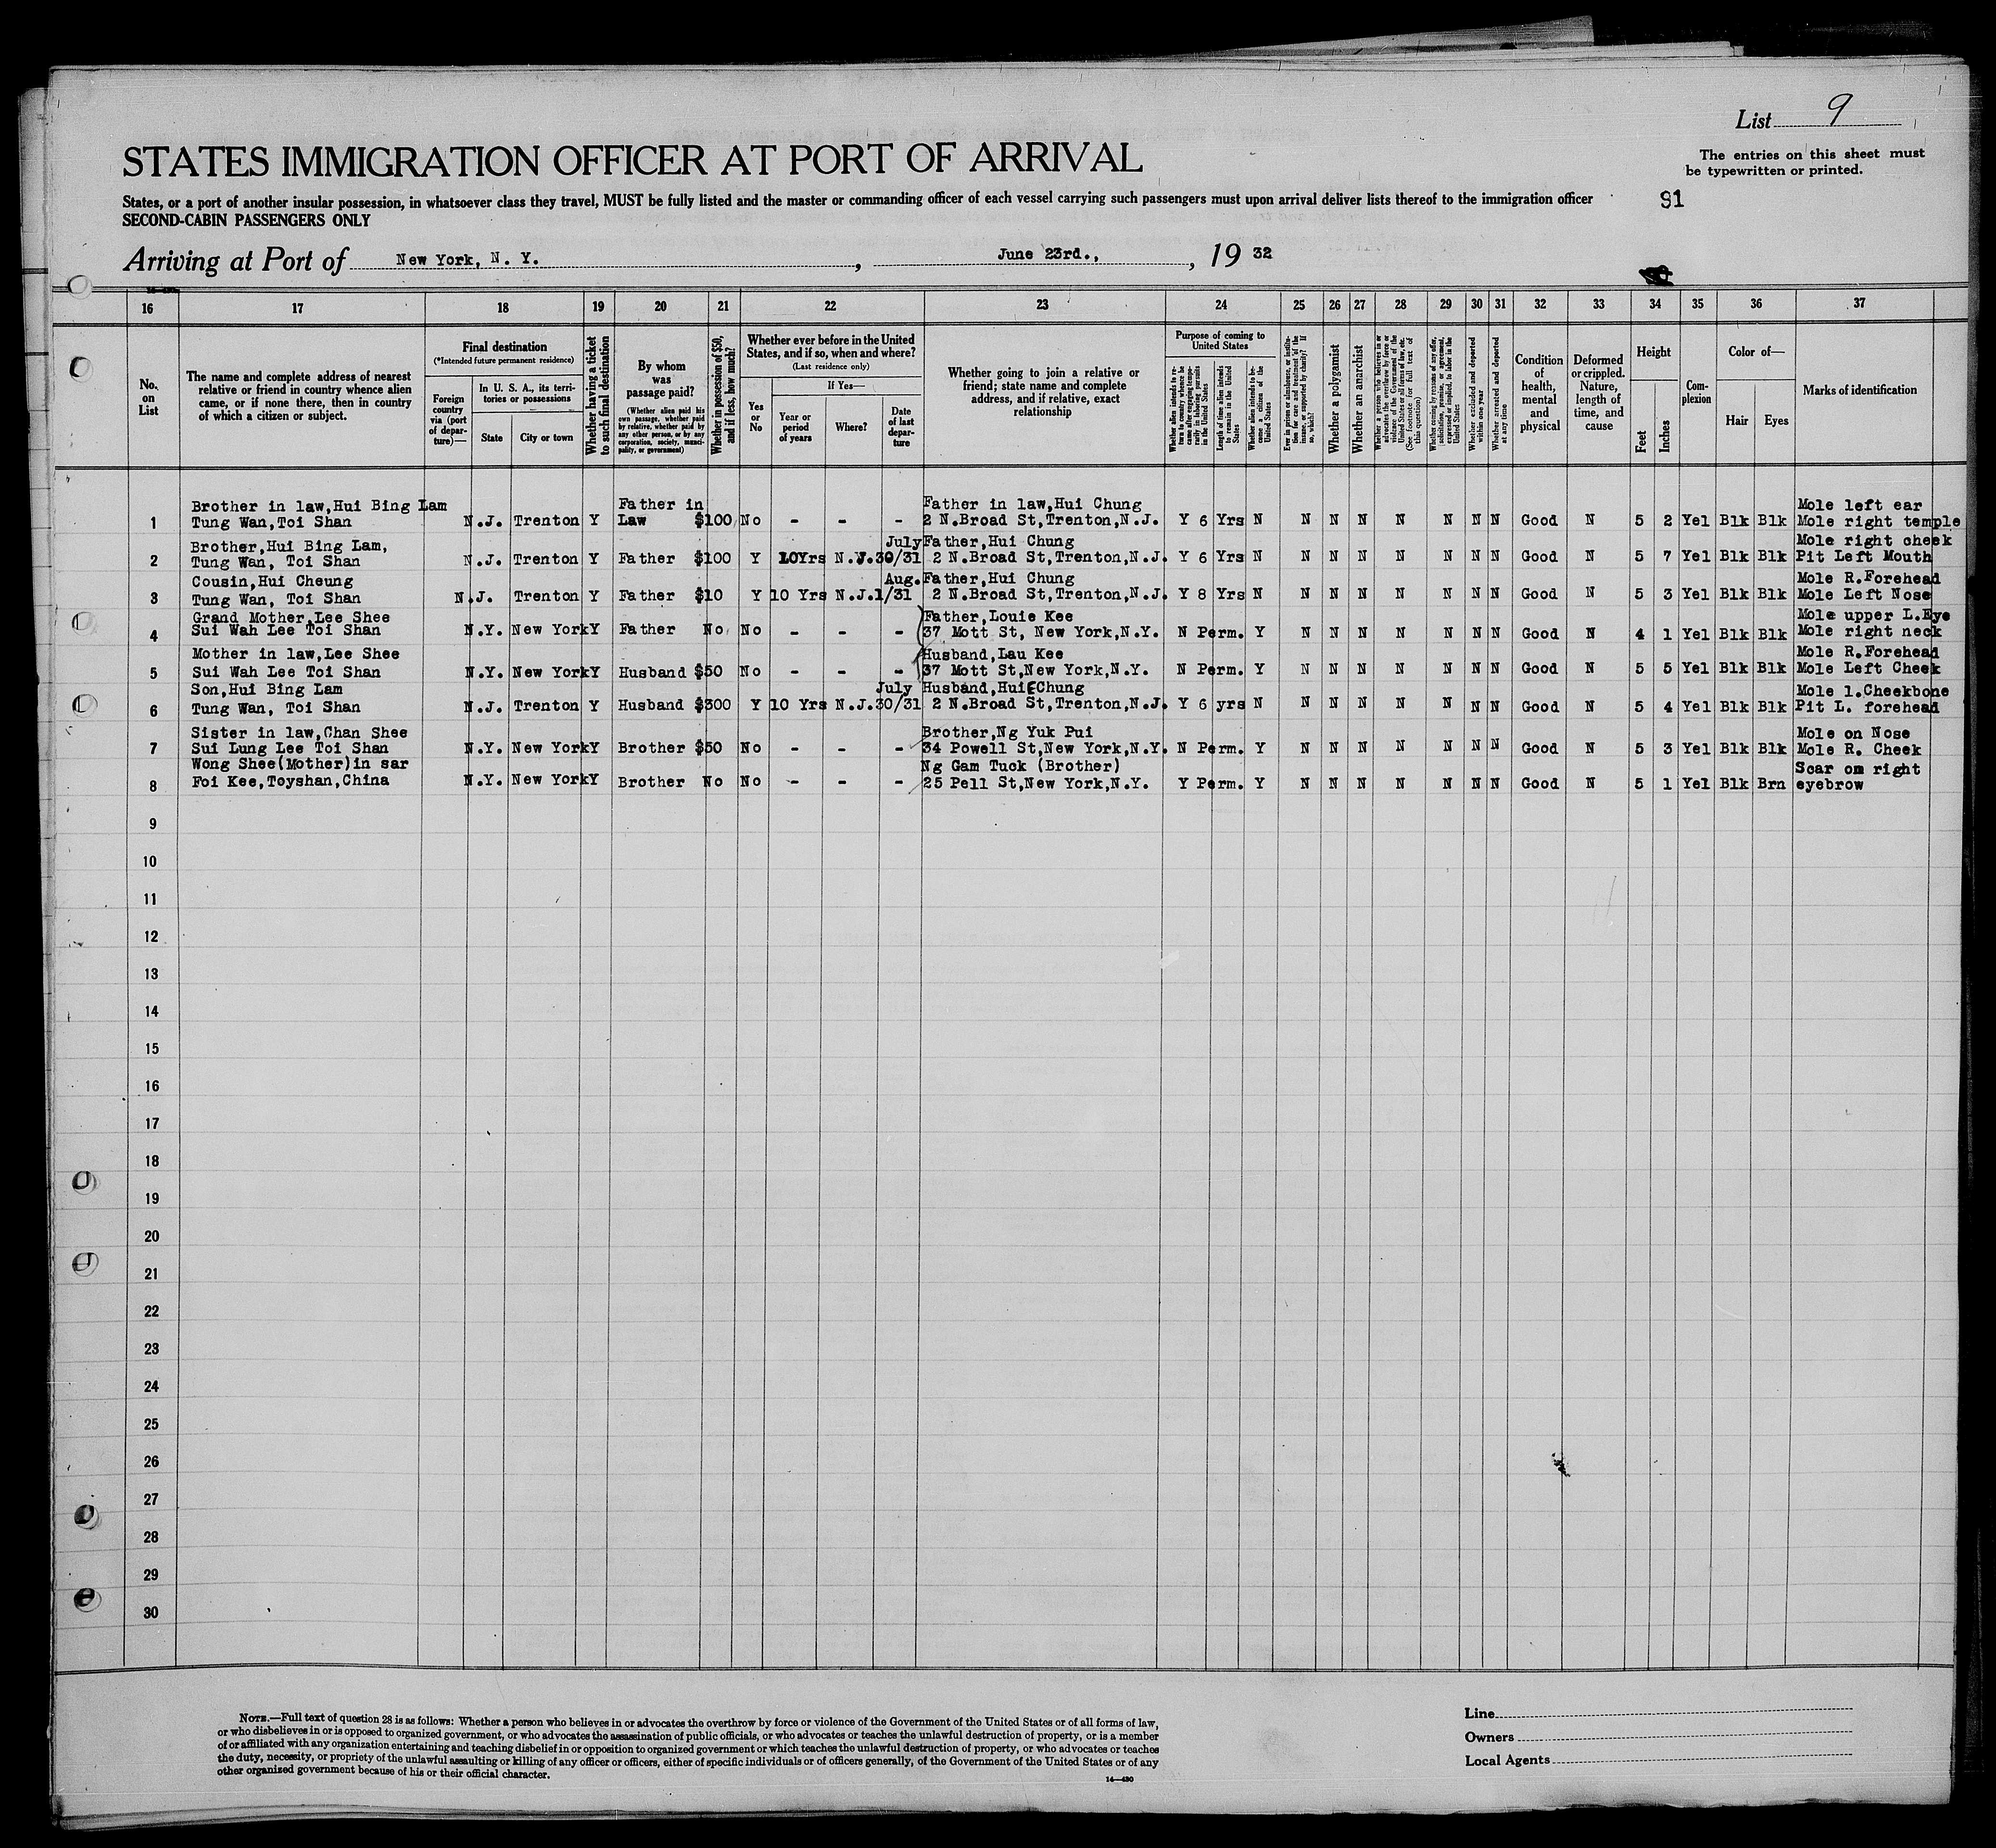 List 9
STATES IMMIGRATION OFFICER AT PORT OF ARRIVAL
The entries on this sheet must
be typewritten or printed.
States, or a port of another insular possession, in whatsoever class they travel, MUST be fully listed and the master or commanding officer of each vessel carrying such passengers must upon arrival deliver lists thereof to the immigration officer
91
SECOND-CABIN PASSENGERS ONLY
Arriving at Port of New York, N. Y. , June 23rd., , 19 32
16 17 18 19 20 21 22 23 24 25 26 27 28 29 30 31 32 33 34 35 36 37
No. on List
The name and complete address of nearest
relative or friend in country whence alien
came, or if none there, then in country
of which a citizen or subject.
Final destination
(*Intended future permanent residence)
Foreign
country
via (port
of depar-
ture)—
In U. S. A., its terri-
tories or possessions
State
City or town
Whether having a ticket
to such final destination
By whom
was
passage paid?
(Whether alien paid his
own passage, whether paid
by relative, whether paid by
any other person, or by any
corporation, society, munici-
pality, or government)
Whether in possession of $50,
and if less, how much?
Whether ever before in the United
States, and if so, when and where?
(Last residence only)
Yes
or
No
If Yes—
Year or
period
of years
Where?
Date
of last
depar-
ture
Whether going to join a relative or
friend; state name and complete
address, and if relative, exact
relationship
Purpose of coming to
United States
Whether alien intends to re-
turn to country whence he
came after engaging tempo-
rarily in laboring pursuits
in the United States
Length of time alien intends
to remain in the United
States
Whether alien intends to be-
come a citizen of the
United States
Ever in prison or almshouse, or institu-
tion for care and treatment of the
insane, or supported by charity? If
so, which?
Whether a polygamist
Whether an anarchist
Whether a person who believes in or
advocates the overthrow by force or
violence of the Government of the
United States or all forms of law, etc.
(See footnote for full text of
this question)
Whether coming by reason of any offer,
solicitation, promise, or agreement,
expressed or implied, to labor in the
United States
Whether excluded and deported
within one year
Whether arrested and deported
at any time
Condition
of
health,
mental
and
physical
Deformed
or crippled.
Nature,
length of
time, and
cause
Height
Feet
Inches
Com-
plexion
Color of—
Hair
Eyes
Marks of identification
Brother in law,Hui Bing Lam Father in Father in law,Hui Chung Mole left ear
1 Tung Wan,Toi Shan N.J. Trenton Y Law $100 No - - - 2 N.Broad St,Trenton,N.J. Y 6 Yrs N N N N N N N N Good N 5 2 Yel Blk Blk Mole right temple
Brother,Hui Bing Lam, July Father,Hui Chung Mole right cheek
2 Tung Wan, Toi Shan N.J. Trenton Y Father $100 Y 10Yrs N.J.30/31 2 N.Broad St,Trenton,N.J. Y 6 Yrs N N N N N N N N Good N 5 7 Yel Blk Blk Pit Left Mouth
Cousin,Hui Cheung Aug. Father,Hui Chung Mole R.Forehead
3 Tung Wan, Toi Shan N.J. Trenton Y Father $10 Y 10 Yrs N.J.1/31 2 N.Broad St,Trenton,N.J. Y 8 Yrs N N N N N N N N Good N 5 3 Yel Blk Blk Mole Left Nose
Grand Mother,Lee Shee Father,Louie Kee Mole upper L.Eye
4 Sui Wah Lee Toi Shan N.Y. New York Y Father No No - - - 37 Mott St, New York,N.Y. N Perm. Y N N N N N N N Good N 4 1 Yel Blk Blk Mole right neck
Mother in law,Lee Shee Husband,Lau Kee Mole R.Forehead
5 Sui Wah Lee Toi Shan N.Y. New York Y Husband $50 No - - - 37 Mott St,New York,N.Y. N Perm. Y N N N N N N N Good N 5 5 Yel Blk Blk Mole Left Cheek
Son,Hui Bing Lam July Husband,Hui Chung Mole l.Cheekbone
6 Tung Wan, Toi Shan N.J. Trenton Y Husband $300 Y 10 Yrs N.J.30/31 2 N.Broad St,Trenton,N.J. Y 6 yrs N N N N N N N N Good N 5 4 Yel Blk Blk Pit L. forehead
Sister in law,Chan Shee Brother,Ng Yuk Pui Mole on Nose
7 Sui Lung Lee Toi Shan N.Y. New York Y Brother $50 No - - - 34 Powell St,New York,N.Y. N Perm. Y N N N N N N N Good N 5 3 Yel Blk Blk Mole R. Cheek
Wong Shee(Mother)in sar Ng Gam Tuck (Brother) Scar on right
8 Foi Kee,Toyshan,China N.Y. New York Y Brother No No - - - 25 Pell St,New York,N.Y. Y Perm. Y N N N N N N N Good N 5 1 Yel Blk Brn eyebrow
9
10
11
12
13
14
15
16
17
18
19
20
21
22
23
24
25
26
27
28
29
30
NOTE.—Full text of question 28 is as follows: Whether a person who believes in or advocates the overthrow by force or violence of the Government of the United States or of all forms of law,
or who disbelieves in or is opposed to organized government, or who advocates the assassination of public officials, or who advocates or teaches the unlawful destruction of property, or is a member
of or affiliated with any organization entertaining and teaching disbelief in or opposition to organized government or which teaches the unlawful destruction of property, or who advocates or teaches
the duty, necessity, or propriety of the unlawful assaulting or killing of any officer or officers, either of specific individuals or of officers generally, of the Government of the United States or of any
other organized government because of his or their official character.
14—430
Line
Owners
Local Agents